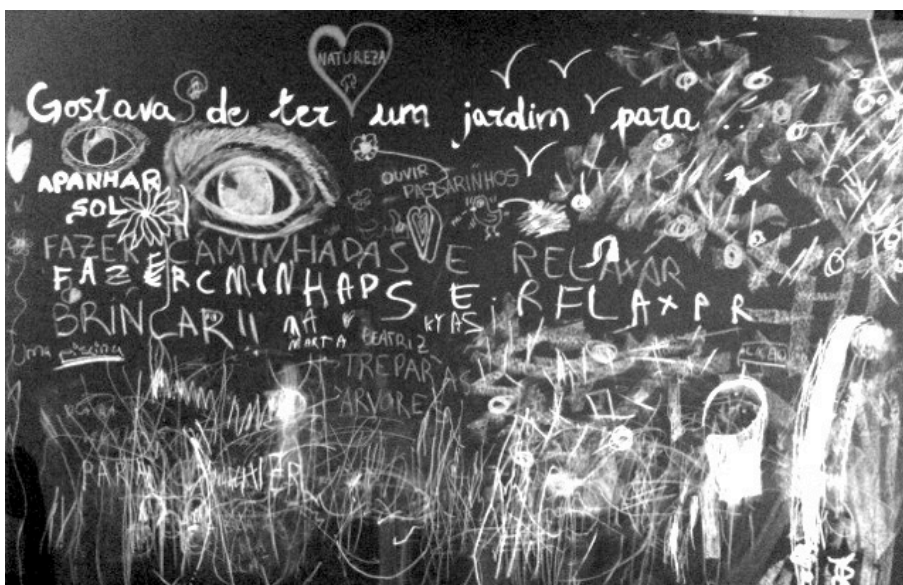 NATUREZA
Gostava de ter um jardim para ...
APANHAR
SOL
OUVIR
PASSARINHOS
FAZER CAMINHADAS E RELAXAR
FAZERCMINHAPS E RFLAXPR
BRINCAR!!
MARTA
BEATRIZ
Uma piscina
TREPAR ÀS
ÁRVORES
PARA